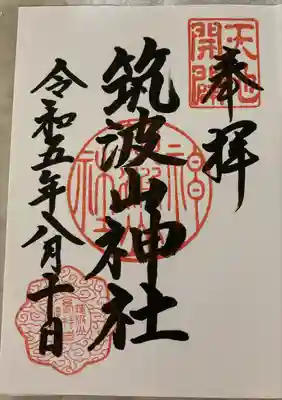 天地開闢
奉拝
筑波山神社
令和五年八月十日